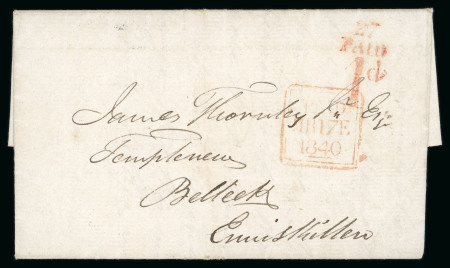 27
PAID
1d
James Thornley Jr. Esq
Templenew
Belleek
Enniskillen
1840